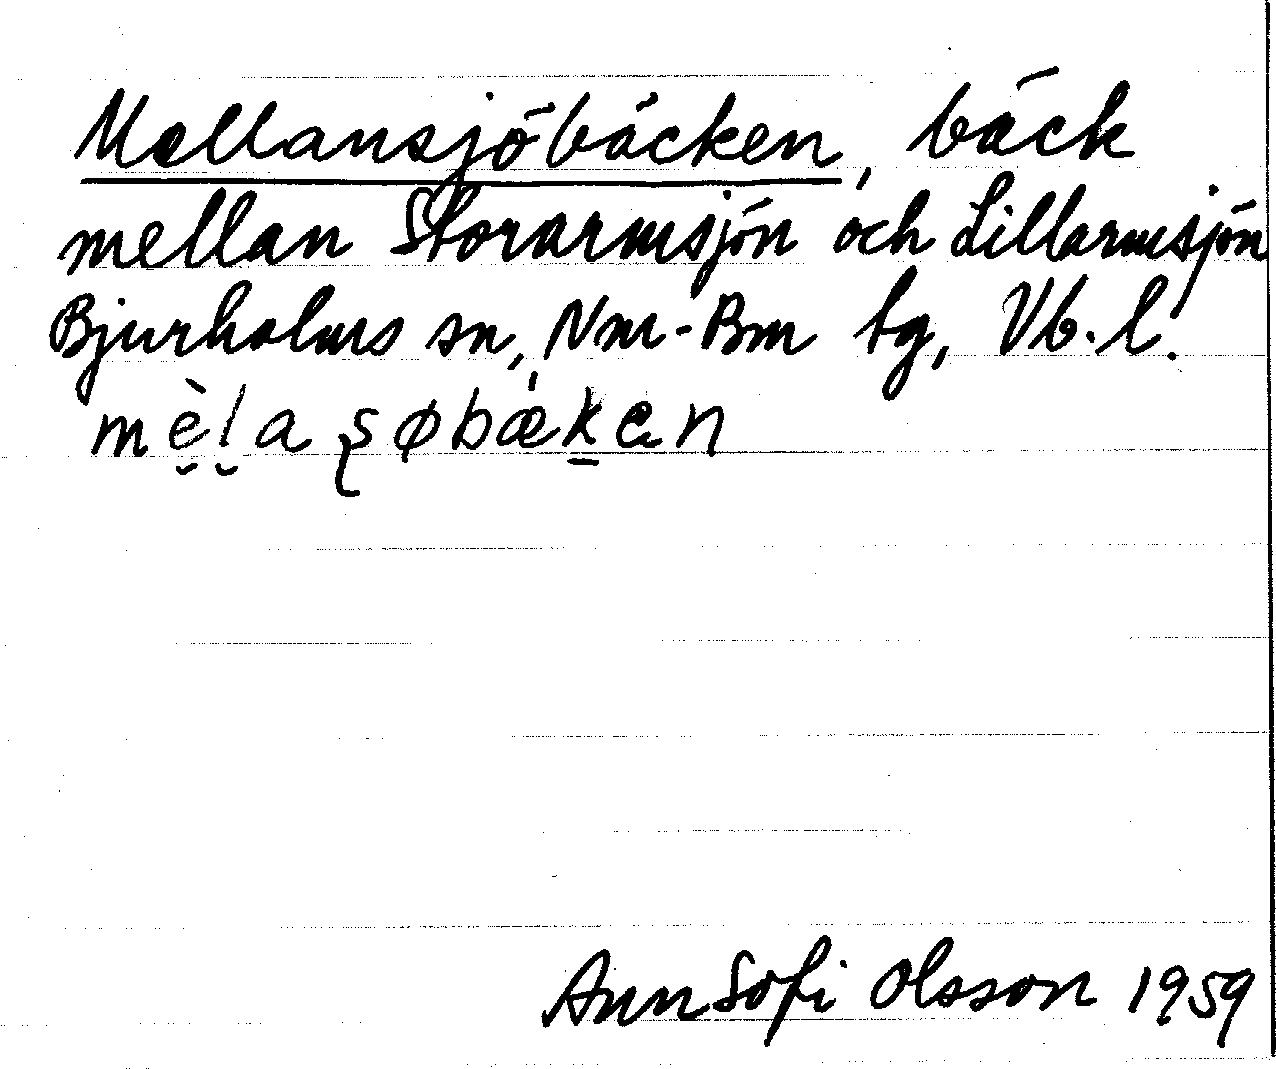 Mellansjöbäcken, bäck
mellan Storarmsjön och Lillarmsjön
Bjurholms sn, Nm-Bm tg, Vb. l.
mèla ʂøbæken
Ann Sofi Olsson 1959